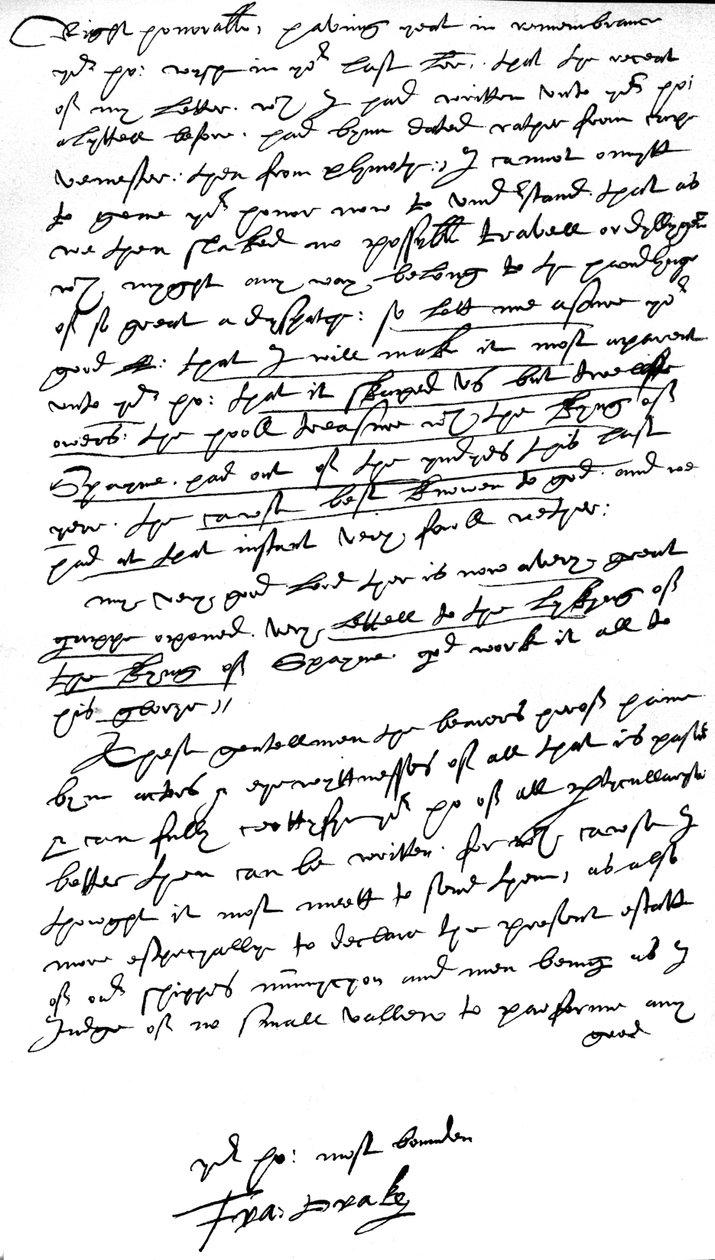 Right honorable, having yeat in remembrance
yor ho: in yor last ler: that the receat
of my letter. wch I had written unto yor ho:
alyttell before. had bynn dated rather from
then from plymothe:, I cannot omytt
to geeve yor honor now to understand. that as
we then slaked no possyble travell or dyllygence
wch myght any way belong to the handlynge
of so great a dyspatche: so lett me asure yor
good L: that I will make it most aparent
unto yor ho: that it skaped us but twellffe
owers: the hooll treasure wch the Kyng of
Spayne. had out of the yndyes this last
yere. the cawse best knowen to god. and we
had at that instant very fowll wether:
my very good Lord ther is now avery great
gappe opened. very lettell to the lykyng of
the Kyng of Spayne. god work it all to
his glorye //
Thes gentellmen the bearers heroff have
byn actors & eye wyttnesses of all that is past
& can fully certtyfye yor ho of all pticullaryties
better then can be written. for wch cawse I
thowght it most meett to send them, as also
more espetyally to declare the present estatt
of our shippes munytyon and men beeing as I
Judge of no small vallew to performe any
good
yor ho: most bounden
Fra: Drake